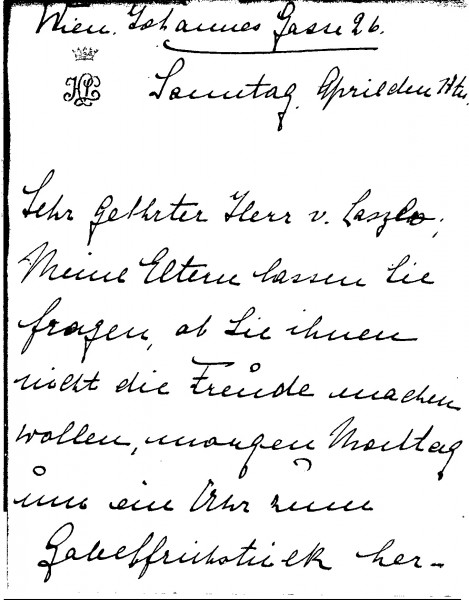 Wien. Johannes Gasse 26.
HL
Sonntag, April den
Sehr geehrter Herr v. Laszlo,
Meine Eltern lassen Sie
fragen, ob Sie ihnen
nicht die Freude machen
wollen, morgen Montag
um ein Uhr zum
Gabelfrühstück her-